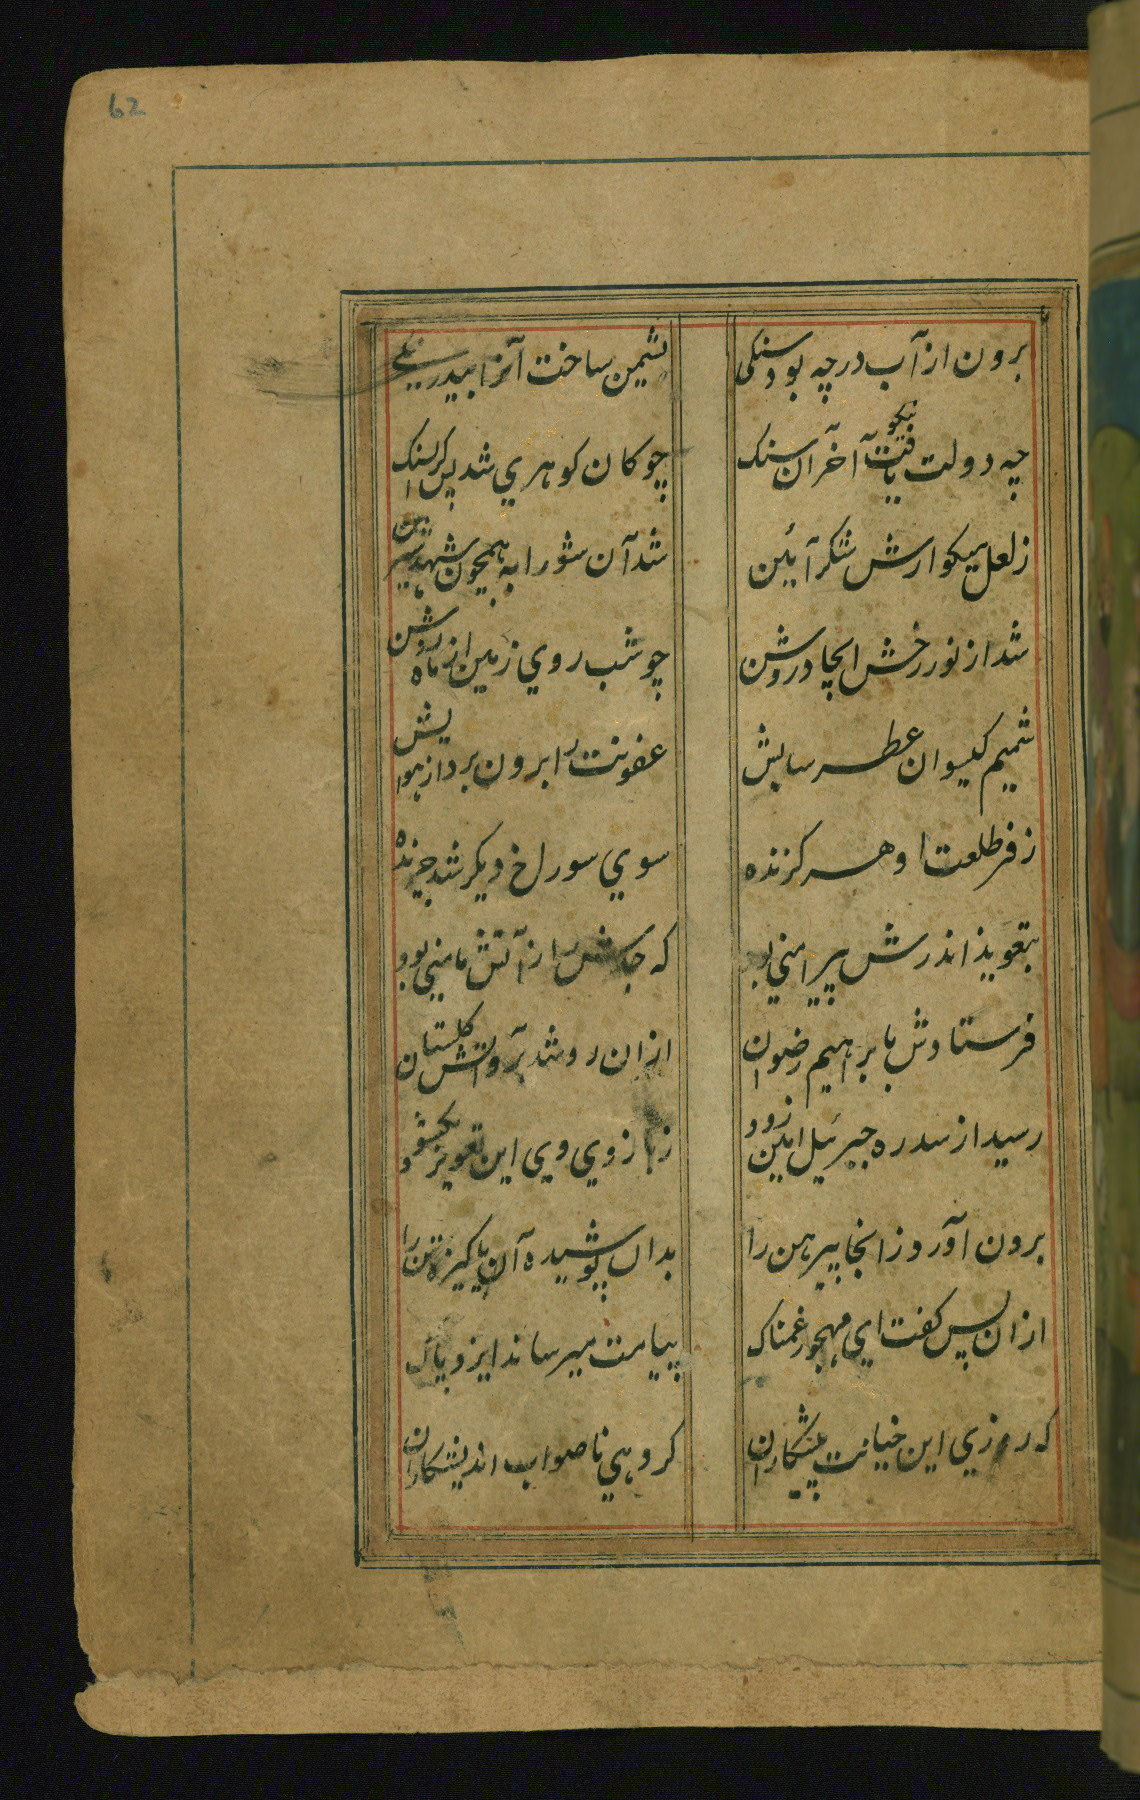 62
برون از آب در چه بود سنکی نشیمن ساخت آنرا بیدرنکی
چه دولت یافت نیکو آخر آن سنک چو کان کوهری شد بس کرانسنک
ز لعل میکوارش شکر آیین شد آن شورابه همچون شهد شیرین
شد از نور رخش انچاه روشن چو شب روی زمین از ماه روشن
شمیم کیسوان عطر سایش عفونت را برون برد از هوایش
ز فر طلعت او هر کزنده سوی سوراخ دیکر شد خزنده
بتعویذ اندرش پیراهنی بود که جدش را از آتش مامنی بود
فرستادش بابراهیم رضوان از ان رو شد برو آتش کلستان
رسید از سدره جبرئیل امین زود ز بازوی وی این تعویذ بکشود
برون آورد زانجا پیرهن را بدان پوشیده آن پاکیزه تن را
از ان پس کفت ای مهجور غمناک پیامت میرساند ایزد پاک
که روزی این خیانت پیشکاران کروهی ناصواب اندیشکاران